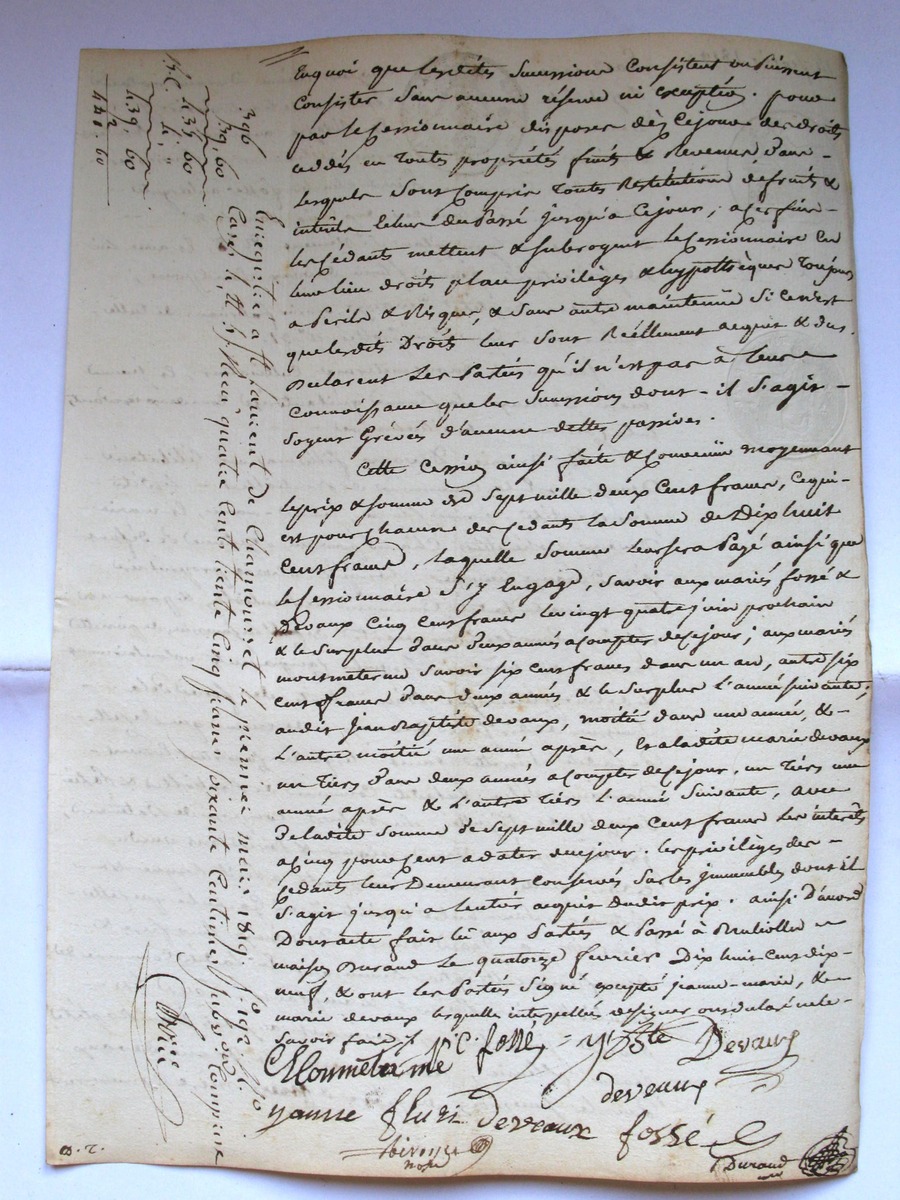 En quoi que lesdites successions consistent ou puissent
consister sans aucune réserve ni exception. pour
par le Cessionnaire disposer dès cejour des droits
cédés en toutes propriétés fruits & Revenus, dans
lesquels sont compris toutes Restitutions de fruits &
intérêts le tems du Passé jusqu'à cejour,
les Cédants mettent & subrogent le Cessionnaire en
leur lieu droits place privilèges & hypothèques toujours
a Perils & Risques, & sans autre maintenue si cen'est
que lesdits Droits leur sont Réellement acquis & dus.
Declarent les Parties qu'il n'est pas à leur
connoissance que les successions dont il s'agit
soyent Grévés d'aucune dettes passives.
Cette Cession ainsi faite & convenüe moyennant
le prix & somme de Sept mille deux Cent francs, cequi
est pour chacun des Cedants la somme de Dix huit
Cent francs, laquelle somme leur sera Payé ainsi que
le Cessionnaire s'y Engage, savoir aux mariés fossé &
Devaux cinq Cent francs le vingt quatre juin prochain
& le surplus dans deux années a comptés de cejour; aux mariés
savoir six cent francs dans un an, autre six
cent francs dans deux années & le surplus l'année suivante;
audit jean baptiste devaux, moitié dans une année, &
L'autre moitié une année après, Et a ladite marie devaux
un Tiers dans deux années a Comptés de Cejour, un Tiers une
année après & L'autre Tiers l'année suivante, avec
De ladite somme de Sept mille deux Cent francs les intérêts
a cinq pour cent a dater de cejour. les privilèges des
Cedants leur Demeurant conservés sur les immeubles dont il
s'agit jusqu'a lentier acquit dudit prix. ainsi D'accord
Dont acte fait lû aux Parties & Passé à
maison Durand le quatorze fevrier Dix huit cent dix
neuf, & ont les Parties signé excepté jeanne-marie, &
marie devaux lesquelles interpellées de signer ont declaré ne le
savoir faire
fossé Bte Devaux
deveaux
fluri deveaux fossé
nore
Durand
D. T.
396
39, 60
435 60
4
439, 60
2
441. 60
Enregistré a St Laurent de Chamousset le premier mars 1819,
Reçu quatre cents trente cinq francs soixante centimes, subvon comprise